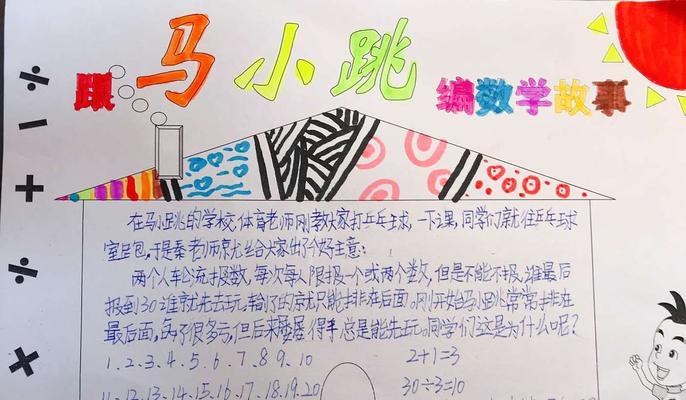 跟马小跳编数学故事
÷
−
+
÷
×
在马小跳的学校,体育老师刚教大家打乒乓球,一下课,同学们就往乒乓球
室跑,于是秦老师就给大家出了个好主意:
两个人轮流报数,每次每人限报一个或两个数,但是不能不报,谁最后
报到30谁就先去玩,输了的就只能排在后面。刚开始马小跳常常排在
最后面,吃了很多亏,但后来屡屡得手,总是能先玩。同学们这是为什么呢?
1.2.3.4.5.6.7.8.9.10 2+1=3
11.12.13.14.15.16.17.18.19.20 30÷3=10